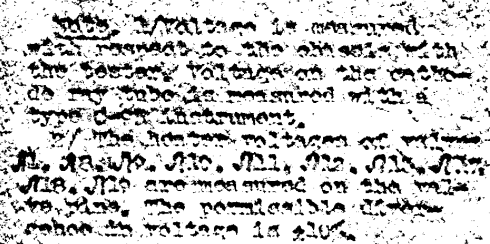 Note. 1/Voltage is measured
with respect to the chassis with
the tester. Voltage on the catho-
de ray tube is measured with a
type instrument.
2/ The heater voltages of valves
Л8, Л9, Л10, Л11, Л12,
Л18, Л19 are measured on the val-
ve pins. The permissible diver-
gence in voltage is ±10%.